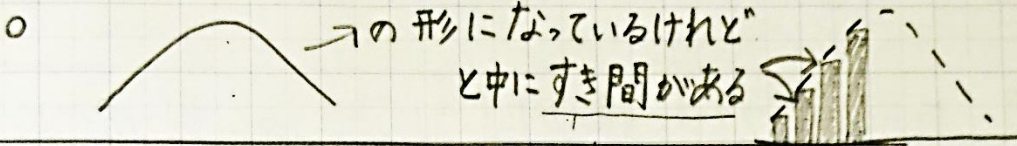 の形になっているけれど
と中にすき間がある